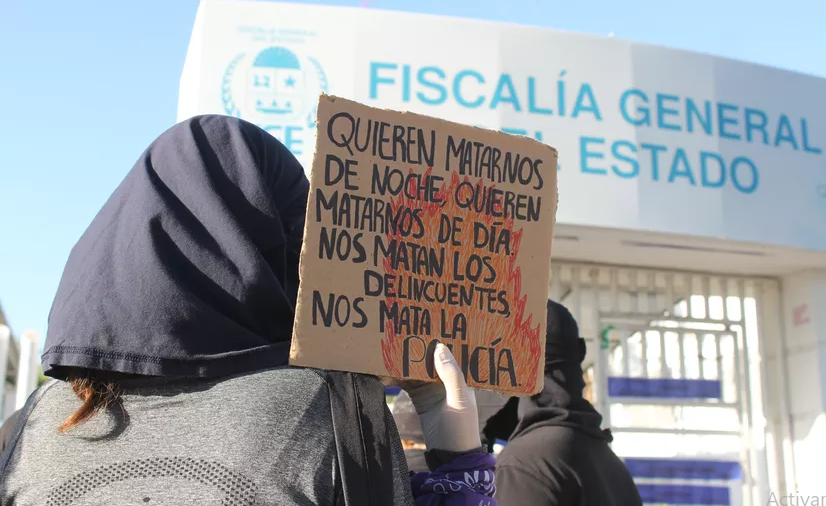 FISCALÍA GENERAL
EL ESTADO
QUIEREN MATARNOS
DE NOCHE, QUIEREN
MATARNOS DE DÍA.
NOS MATAN LOS
DELINCUENTES,
NOS MATA LA
POLICÍA.
Activar